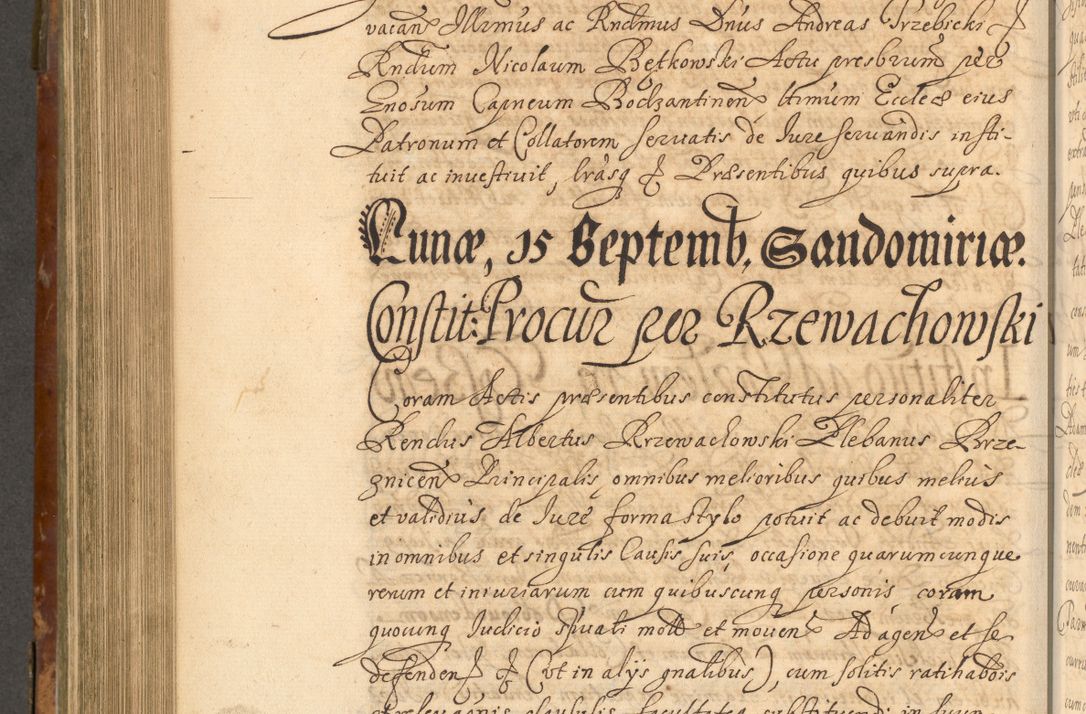 vacan Illrmus ac Rndmus Dnus Andreas Trzebicki
Rndum Nicolaum Bętkowski Actu presbrum per
Gnosum Capneum Bodzantinen ltimum Eccleæ eius
Patronum et Collatorem servatis de Iure servandis insti-
tuit ac investivit, lrasq Præsentibus quibus supra.
Lunæ, 15 Septemb, Sandomiriæ.
Constit: Procur per Rzewachowski
Coram Actis præsentibus constitutus personaliter
Rendus Albertus Krzewachowski Plebanus Brze-
znicen Principalis, omnibus melioribus quibus melius
et validius de Iure forma stylo potuit ac debuit modis
in omnibus et singulis Causis suis, occasione quarumcunque
rerum et iniuriarum cum quibuscunq personis coram
quocunq Iudicio spuali motis et moven Ad agen et se
defenden (vt in alijs gnalibus), cum solitis ratihabois
et relevaonis clausulis, facultateq substituendi in suum